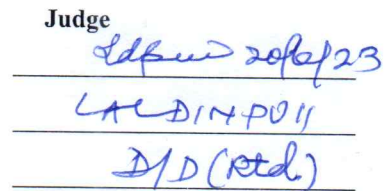 Judge
20/6/23
LALDINPUII
D/D (Rtd.)